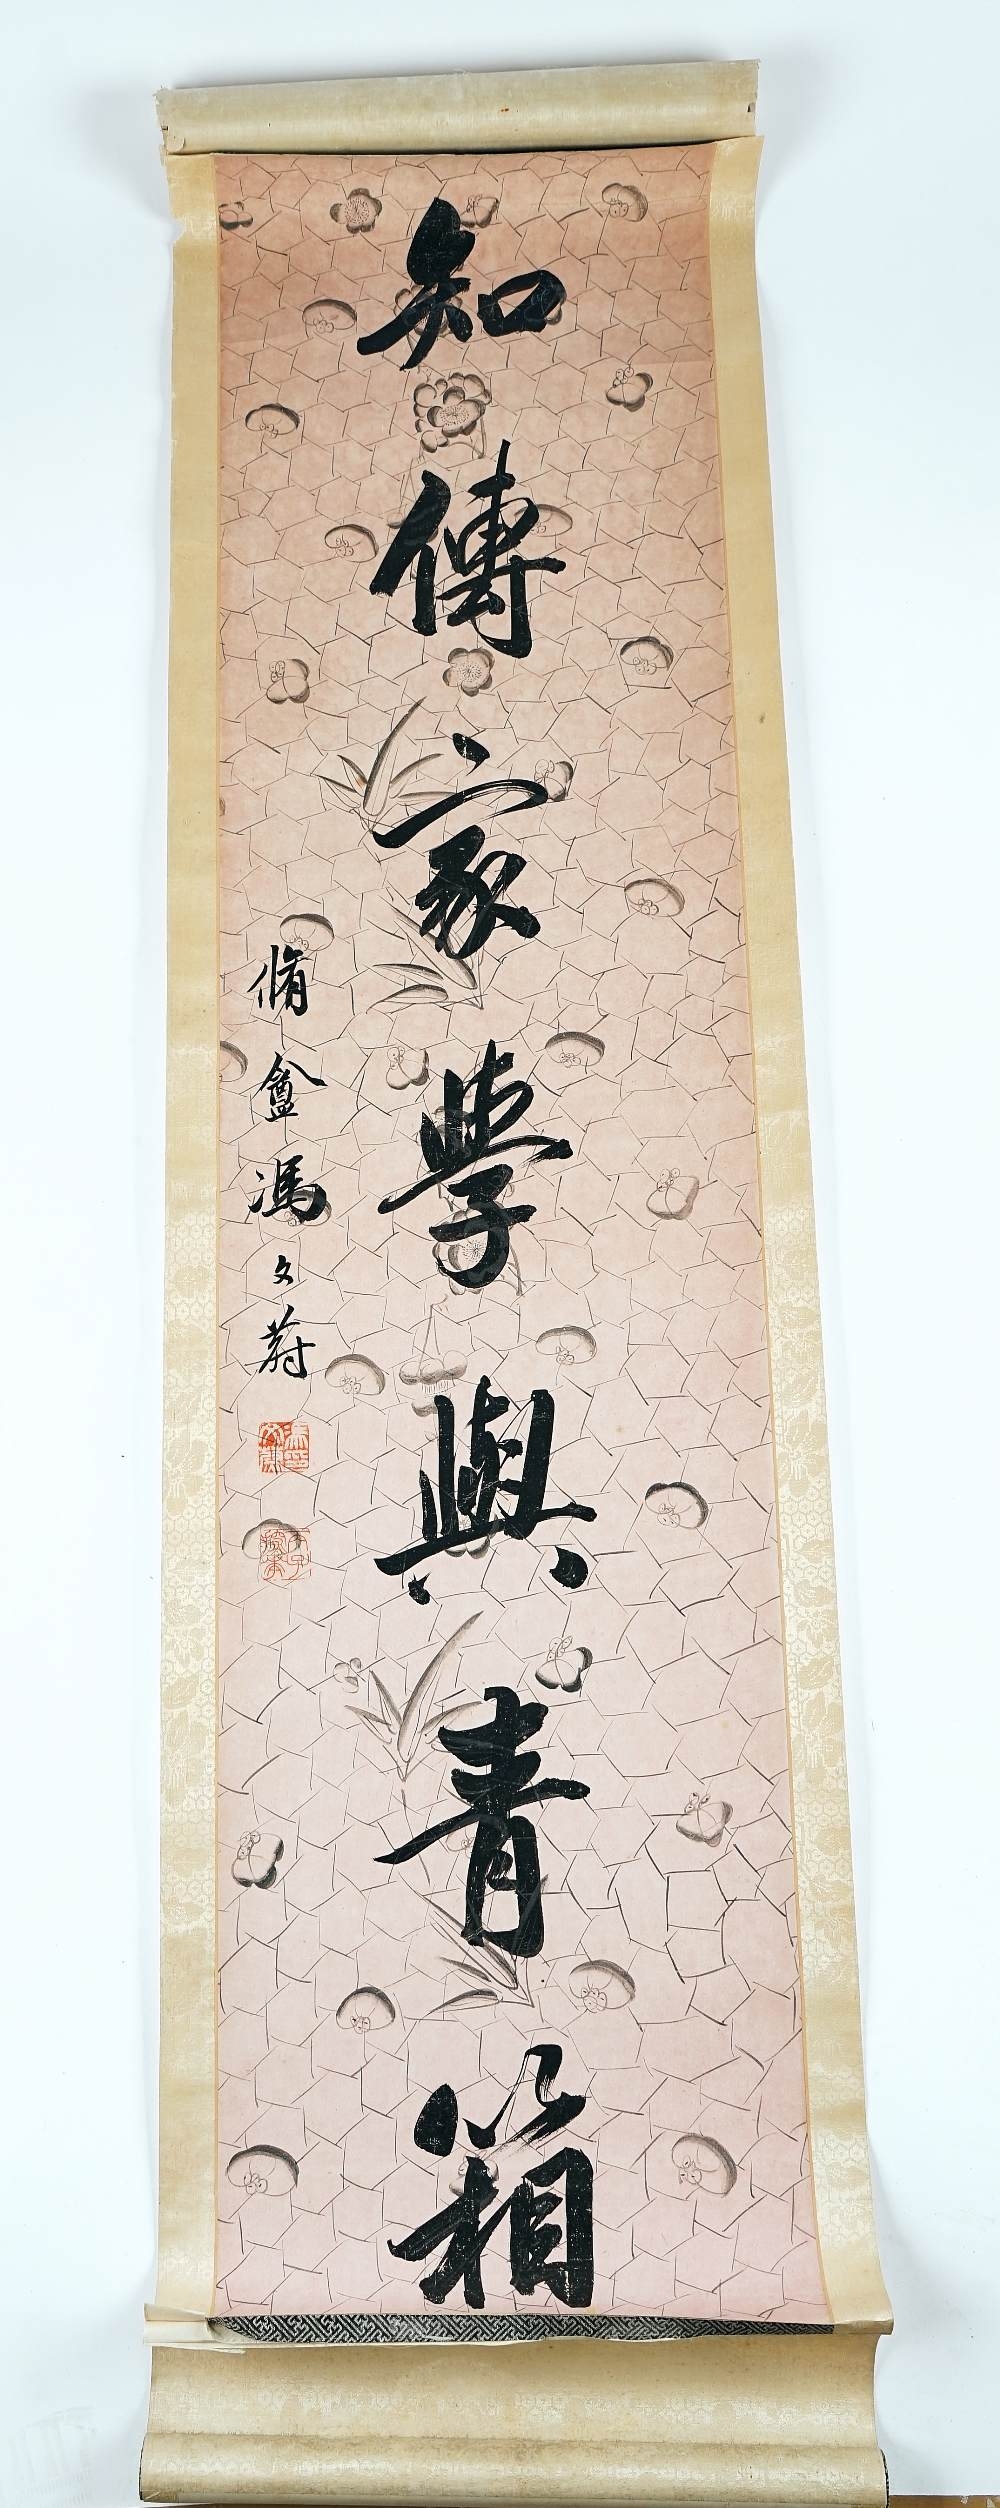 知傳家學與青箱
脩盦馮文蔚